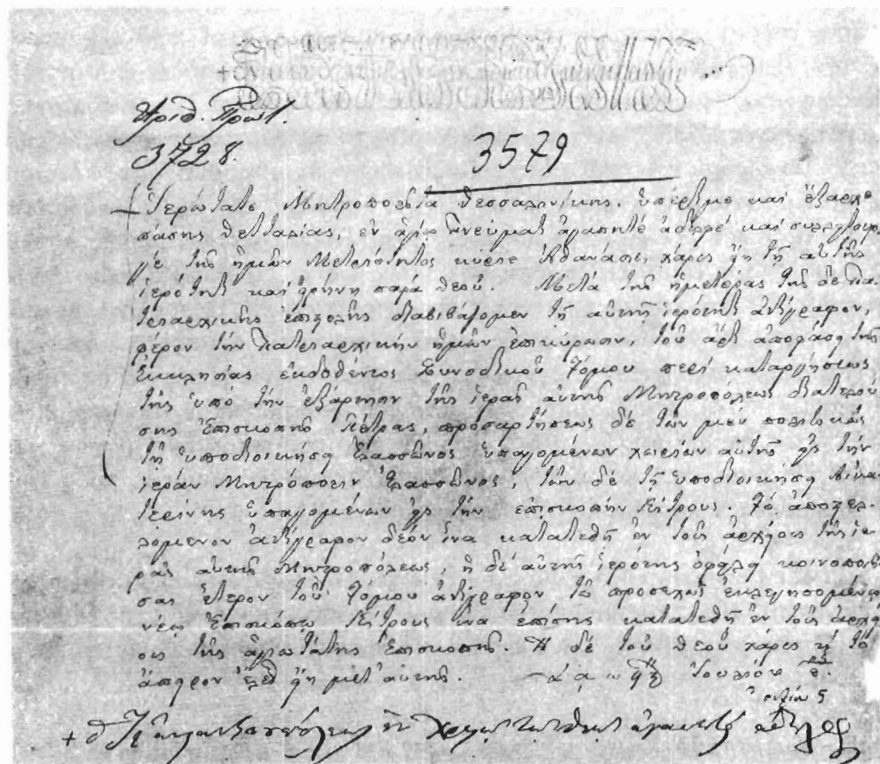 Ἀριθ. Πρωτ.
3728.
3579
+ Ἱερώτατε Μητροπολῖτα Θεσσαλονίκης, ὑπέρτιμε καὶ ἔξαρχε
πάσης Θετταλίας, ἐν ἁγίῳ Πνεύματι ἀγαπητὲ ἀδελφὲ καὶ συλλειτουρ-
γὲ τῆς ἡμῶν Μετριότητος κύριε Ἀθανάσιε, χάρις εἴη τῇ αὐτῆς
ἱερότητι καὶ εἰρήνη παρὰ Θεοῦ. Μετὰ τῆς ἡμετέρας τῆσδε Πα-
τριαρχικῆς ἐπιστολῆς διαβιβάζομεν τῇ αὐτῆς ἱερότητι ἀντίγραφον,
φέρον τὴν Πατριαρχικὴν ἡμῶν ἐπικύρωσιν, τοῦ ἄρτι ἀποφάσει τῆς
Ἐκκλησίας ἐκδοθέντος Συνοδικοῦ Τόμου περὶ καταργήσεως
τῆς ὑπὸ τὴν ἐξάρτησιν τῆς ἱερᾶς αὐτῆς Μητροπόλεως διατελού-
σης Ἐπισκοπῆς Πέτρας, προσαρτήσεως δὲ τῶν μὲν πολιτικῶς
τῇ ὑποδιοικήσει Ἐλασσῶνος ὑπαγομένων χωρίων αὐτῆς εἰς τὴν
ἱερὰν Μητρόπολιν Ἐλασσῶνος, τῶν δὲ τῇ ὑποδιοικήσει Αἰκα-
τερίνης ὑπαγομένων εἰς τὴν ἐπισκοπὴν Κίτρους. Τὸ ἀποστελ-
λόμενον ἀντίγραφον δέον ἵνα κατατεθῇ ἐν τοῖς ἀρχείοις τῆς ἱε-
ρᾶς αὐτῆς Μητροπόλεως, ἡ δὲ αὐτῆς ἱερότης ὀφείλει κοινοποιῆ-
σαι ἕτερον τοῦ Τόμου ἀντίγραφον τῷ προσεχῶς ἐκλεγησομένῳ
νέῳ Ἐπισκόπῳ Κίτρους ἵνα ἐπίσης κατατεθῇ ἐν τοῖς ἀρχεί-
οις τῆς ἁγιωτάτης Ἐπισκοπῆς. Ἡ δὲ τοῦ Θεοῦ χάρις καὶ τὸ
ἄπειρον ἔλεος εἴη μετ' αὐτῆς. Ἰουλίου
+ ὁ Κωνσταντινουπόλεως ἐν Χριστῷ τῷ Θεῷ ἀγαπητὸς ἀδελφὸς